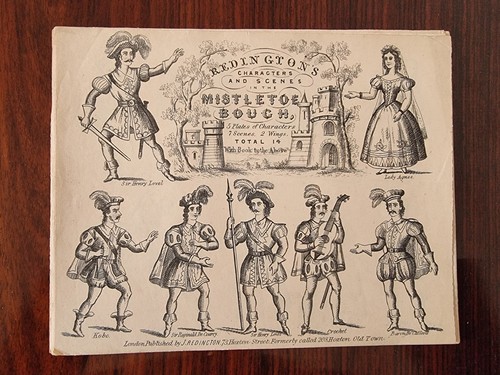 REDINGTON'S
CHARACTERS
AND SCENES
IN THE
MISTLETOE
BOUGH,
5 Plates of Characters
7 Scenes. 2 Wings.
TOTAL 14
With Book to the Above
Sir Henry Loval.
Lady Agnes.
Kobo.
Sir Reginald De Courcy
Sir Henry
Crochet
Baron
London, Published by J. REDINGTON, 73, Hoxton Street, Formerly called 208, Hoxton Old Town.